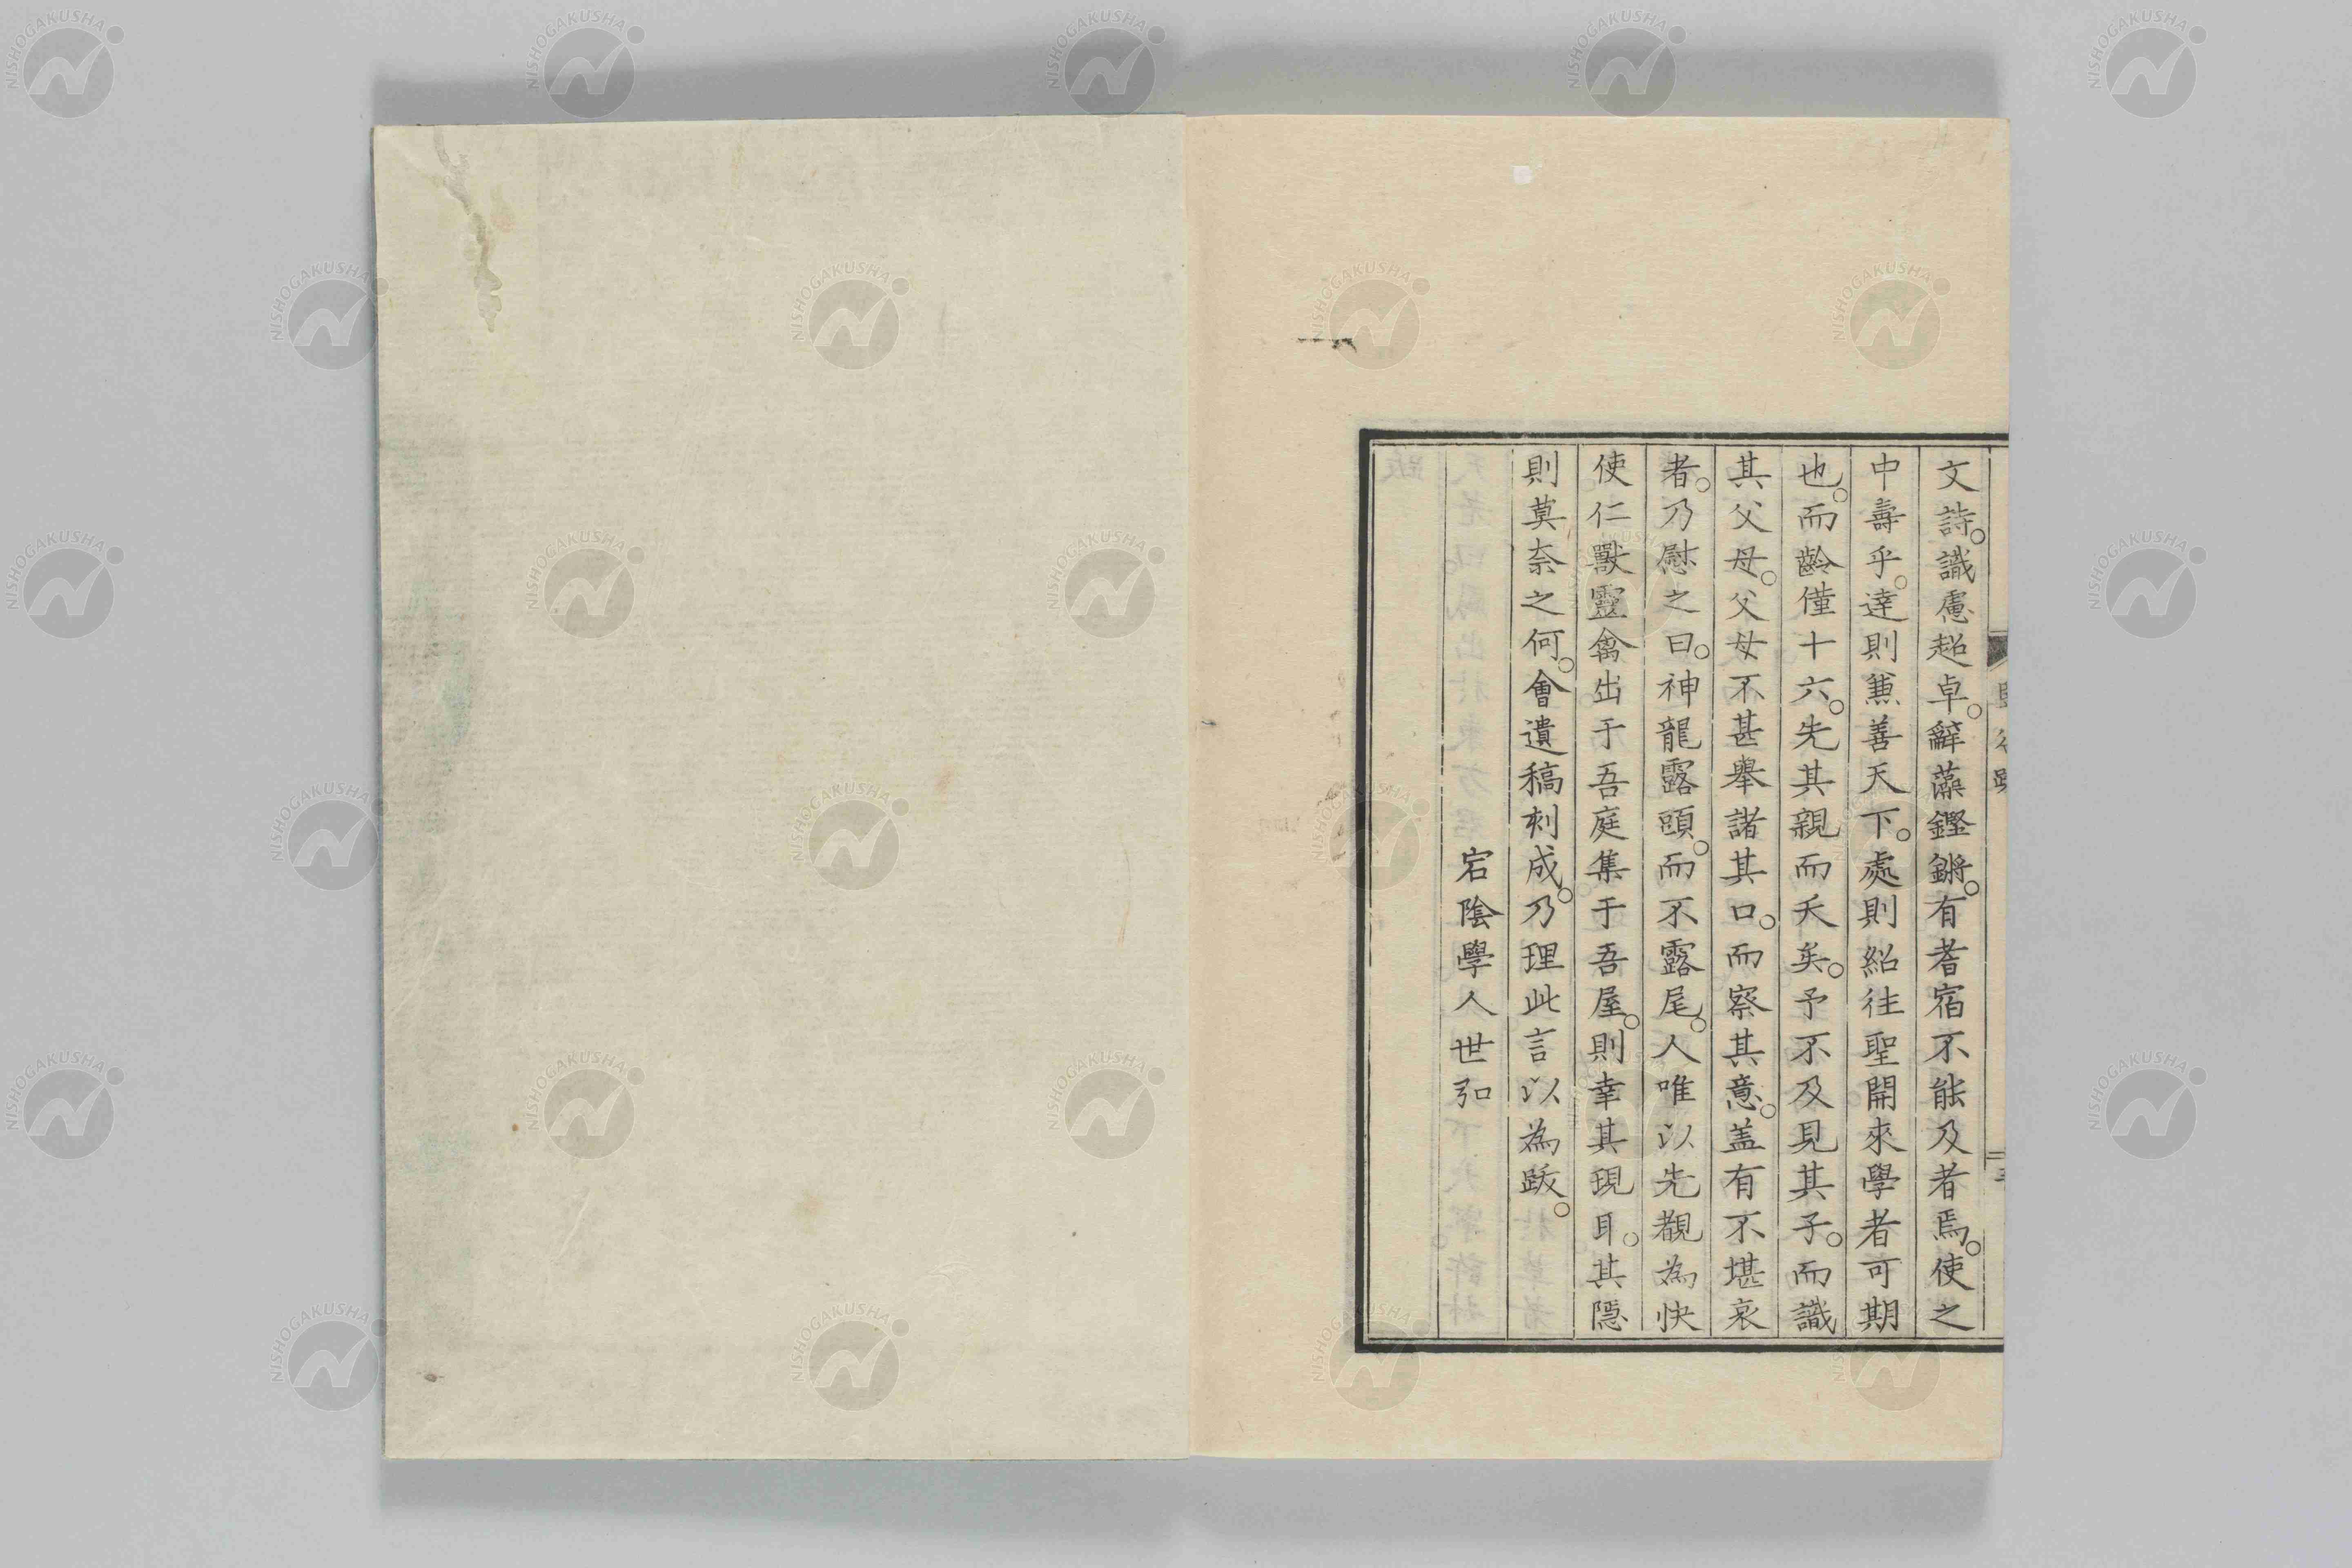 文詩。識慮超卓。辭藻鏗鏘。有耆宿不能及者焉。使之
中壽乎。達則兼善天下。處則紹往聖開來學者可期
也。而齡僅十六。先其親而夭矣。予不及見其子。而識
其父母。父母不甚舉諸其口。而察其意。蓋有不堪哀
者。乃慰之曰。神龍露頭。而不露尾。人唯以先覩為快
使仁獸靈禽出于吾庭集于吾屋。則幸其現耳。其隱
則莫奈之何。會遺稿刻成。乃理此言以為跋。
宕陰學人世弘
NISHOGAKUSHA